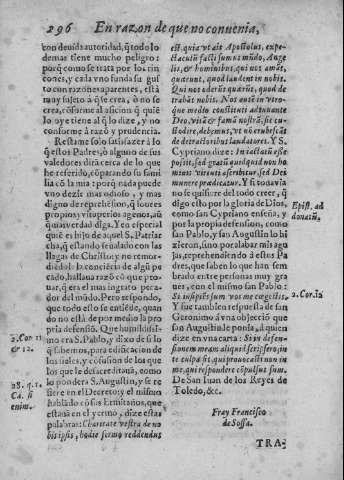 296 En razon de que no convenia,
con deuida autoridad, q̃ todo lo
demas tiene mucho peligro:
porq̃ como se trata por los rin
cones, y cada vno funda su gus
to con razones aparentes, està
muy sujeto a que se crea, ò no se
crea, cõforme al aficion q̃ quiẽ
lo oye tiene al q̃ lo dize, y no
conforme à razõ y prudencia.
Restame solo satisfazer à lo
q̃ estos Padres, ò alguno de sus
valedores dirà cerca de lo que
he referido, cõparando su fami
lia cõ la mia: porq̃ nada puede
vno dezir mas odioso, y mas
digno de reprehẽsion, q̃ loores
propios y vituperios agenos, aũ
q̃ aun verdad diga. Y en especial
quiẽ es hijo de aquel S. Patriar
cha, q̃ estando señalado con las
llagas de Christo; y no remor-
diẽdole la conciẽcia de algũ pe
cado, hallaua razõ cõ que pro-
uar, q̃ era el mas ingrato peca-
dor del mũdo. Pero respondo,
que todo esto se entiẽde, quan
do no està de por medio la pro
pria defensiõ. Que humildissi
mo era S. Pablo, y dixo de si lo
q̃ sabemos, para edificacion de
los fieles, y cõfusion de los que
los que le desacreditauã, como
lo pondera S. Augustin, y se re
fiere en el Decreto: y el mismo
hablado cõ sus Ermitaños, que
estauã en el yermo, dize estas
palabras: Charitate vestra de no
bis ipsis, hodie sermo reddendus
2. Cor. 11
& 12.
28. q. 1.
Cã. si
enim.
est. quia vt ait Apostolus, expe-
ctaculũ facti sumus mũdo, Ange
lis, & hominibus. qui nos amãt,
quærunt, quod laudent in nobis.
Qui nos oderũt quærũt, quod de
trahãt nobis. Nos autẽ in vtro-
que medio constituti adiuuante
Deo, vitã & famã nostrã, sic cu-
stodire, debemus, vt nõ erubescãt
de detractoribus laudatores. Y S.
Cypriano dize: In tactatiõ est
positis, sed gratiũ quidquid non ho
minis virtuti ascribitur, sed Dei
munere prædicatur. Y si todavia
no se quisiere del todo creer, q̃
digo esto por la gloria de Dios,
como san Cypriano enseña, y
por la propia defension, como
san Pablo, y san Augustin lo hi
zieron, sino por alabar mis agu
jas, reprehendiendo à estos Pa
dres, que saben lo que han sem
brado entre personas muy gra
ues, con el mismo san Pablo:
Si insipiẽs sum vos me coegistis.
Y fue tambien respuesta de san
Geronimo à vna objeciõ que
san Augustin le ponia, à quien
dize en vna carta: Si in defen-
sionem meam aliquid scripsero, in
te culpa sit, qui prouocasti non in
me, qui respondere cõpulsus sum.
De San Iuan de los Reyes de
Toledo, &c.
Epist. ad
donatũ.
2. Cor. 12
Fray Francisco
de Sossa.
TRA-